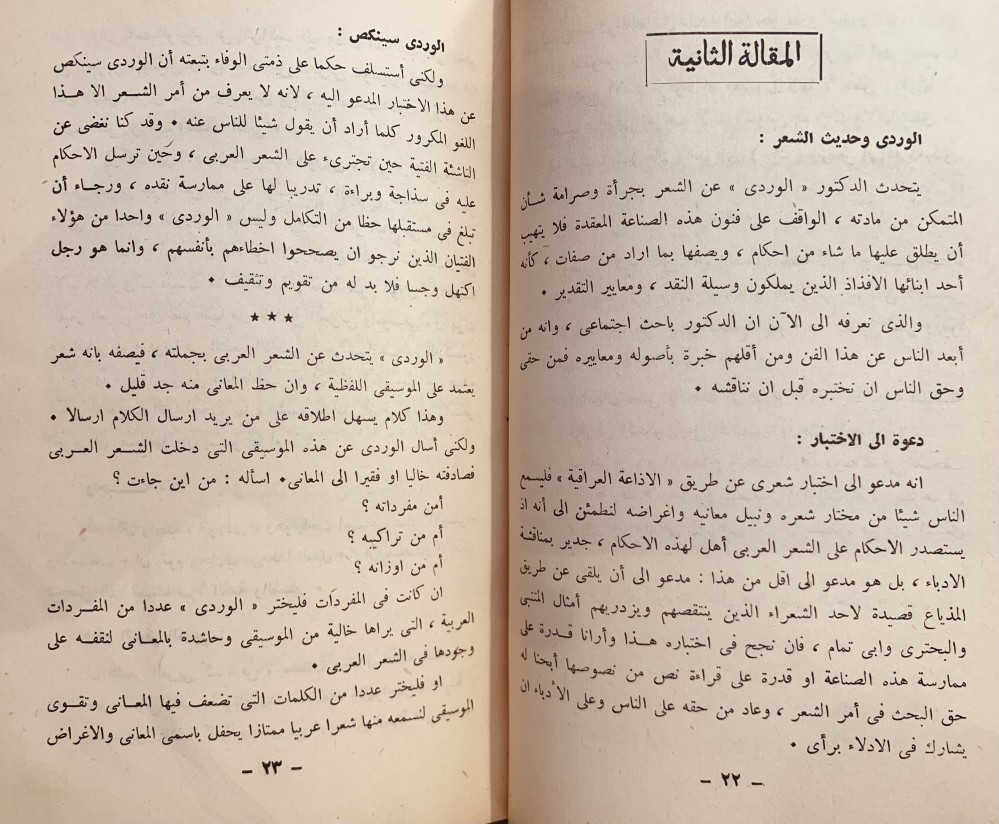 المقالة الثانية
الوردى وحديث الشعر :
يتحدث الدكتور « الوردى » عن الشعر بجرأة وصرامة شأن
المتمكن من مادته ، الواقف على فنون هذه الصناعة المعقدة فلا يتهيب
أن يطلق عليها ما شاء من احكام ، ويصفها بما اراد من صفات ، كأنه
أحد ابنائها الافذاذ الذين يملكون وسيلة النقد ، ومعايير التقدير ٠
والذى نعرفه الى الآن ان الدكتور باحث اجتماعى ، وانه من
أبعد الناس عن هذا الفن ومن أقلهم خبرة بأصوله ومعاييره فمن حقى
وحق الناس ان نختبره قبل ان نناقشه ٠
دعوة الى الاختبار :
انه مدعو الى اختبار شعرى عن طريق « الاذاعة العراقية » فليسمع
الناس شيئا من مختار شعره ونبيل معانيه واغراضه لنطمئن الى أنه اذ
يستصدر الاحكام على الشعر العربى أهل لهذه الاحكام ، جدير بمناقشة
الادباء ، بل هو مدعو الى اقل من هذا : مدعو الى أن يلقى عن طريق
المذياع قصيدة لاحد الشعراء الذين ينتقصهم ويزدريهم أمثال المتنبى
والبحترى وابى تمام ، فان نجح فى اختباره هذا وأرانا قدرة على
ممارسة هذه الصناعة او قدرة على قراءة نص من نصوصها أبحنا له
حق البحث فى أمر الشعر ، وعاد من حقه على الناس وعلى الأدباء ان
يشارك فى الادلاء برأى ٠
– ٢٢ –
الوردى سينكص :
ولكنى أستسلف حكما على ذمتى الوفاء بتبعته أن الوردى سينكص
عن هذا الاختبار المدعو اليه ، لانه لا يعرف من أمر الشعر الا هذا
اللغو المكرور كلما أراد أن يقول شيئا للناس عنه ٠ وقد كنا نغضى عن
الناشئة الفتية حين تجترىء على الشعر العربى ، وحين ترسل الاحكام
عليه فى سذاجة وبراءة ، تدريبا لها على ممارسة نقده ، ورجاء أن
تبلغ فى مستقبلها حظا من التكامل وليس « الوردى » واحدا من هؤلاء
الفتيان الذين نرجو ان يصححوا اخطاءهم بأنفسهم ، وانما هو رجل
اكتهل وجسا فلا بد له من تقويم وتثقيف ٠
★ ★ ★
« الوردى » يتحدث عن الشعر العربى بجملته ، فيصفه بانه شعر
يعتمد على الموسيقى اللفظية ، وان حظ المعانى منه جد قليل ٠
وهذا كلام يسهل اطلاقه على من يريد ارسال الكلام ارسالا ٠
ولكنى أسال الوردى عن هذه الموسيقى التى دخلت الشعر العربى
فصادفته خاليا او فقيرا الى المعانى٠ اسأله : من اين جاءت ؟
أمن مفرداته ؟
أم من تراكيبه ؟
أم من اوزانه ؟
ان كانت فى المفردات فليختر « الوردى » عددا من المفردات
العربية ، التى يراها خالية من الموسيقى وحاشدة بالمعانى لنقفه على
وجودها فى الشعر العربى ٠
او فليختر عددا من الكلمات التى تضعف فيها المعانى وتقوى
الموسيقى لنسمعه منها شعرا عربيا ممتازا يحفل باسمى المعانى والاغراض
– ٢٣ –